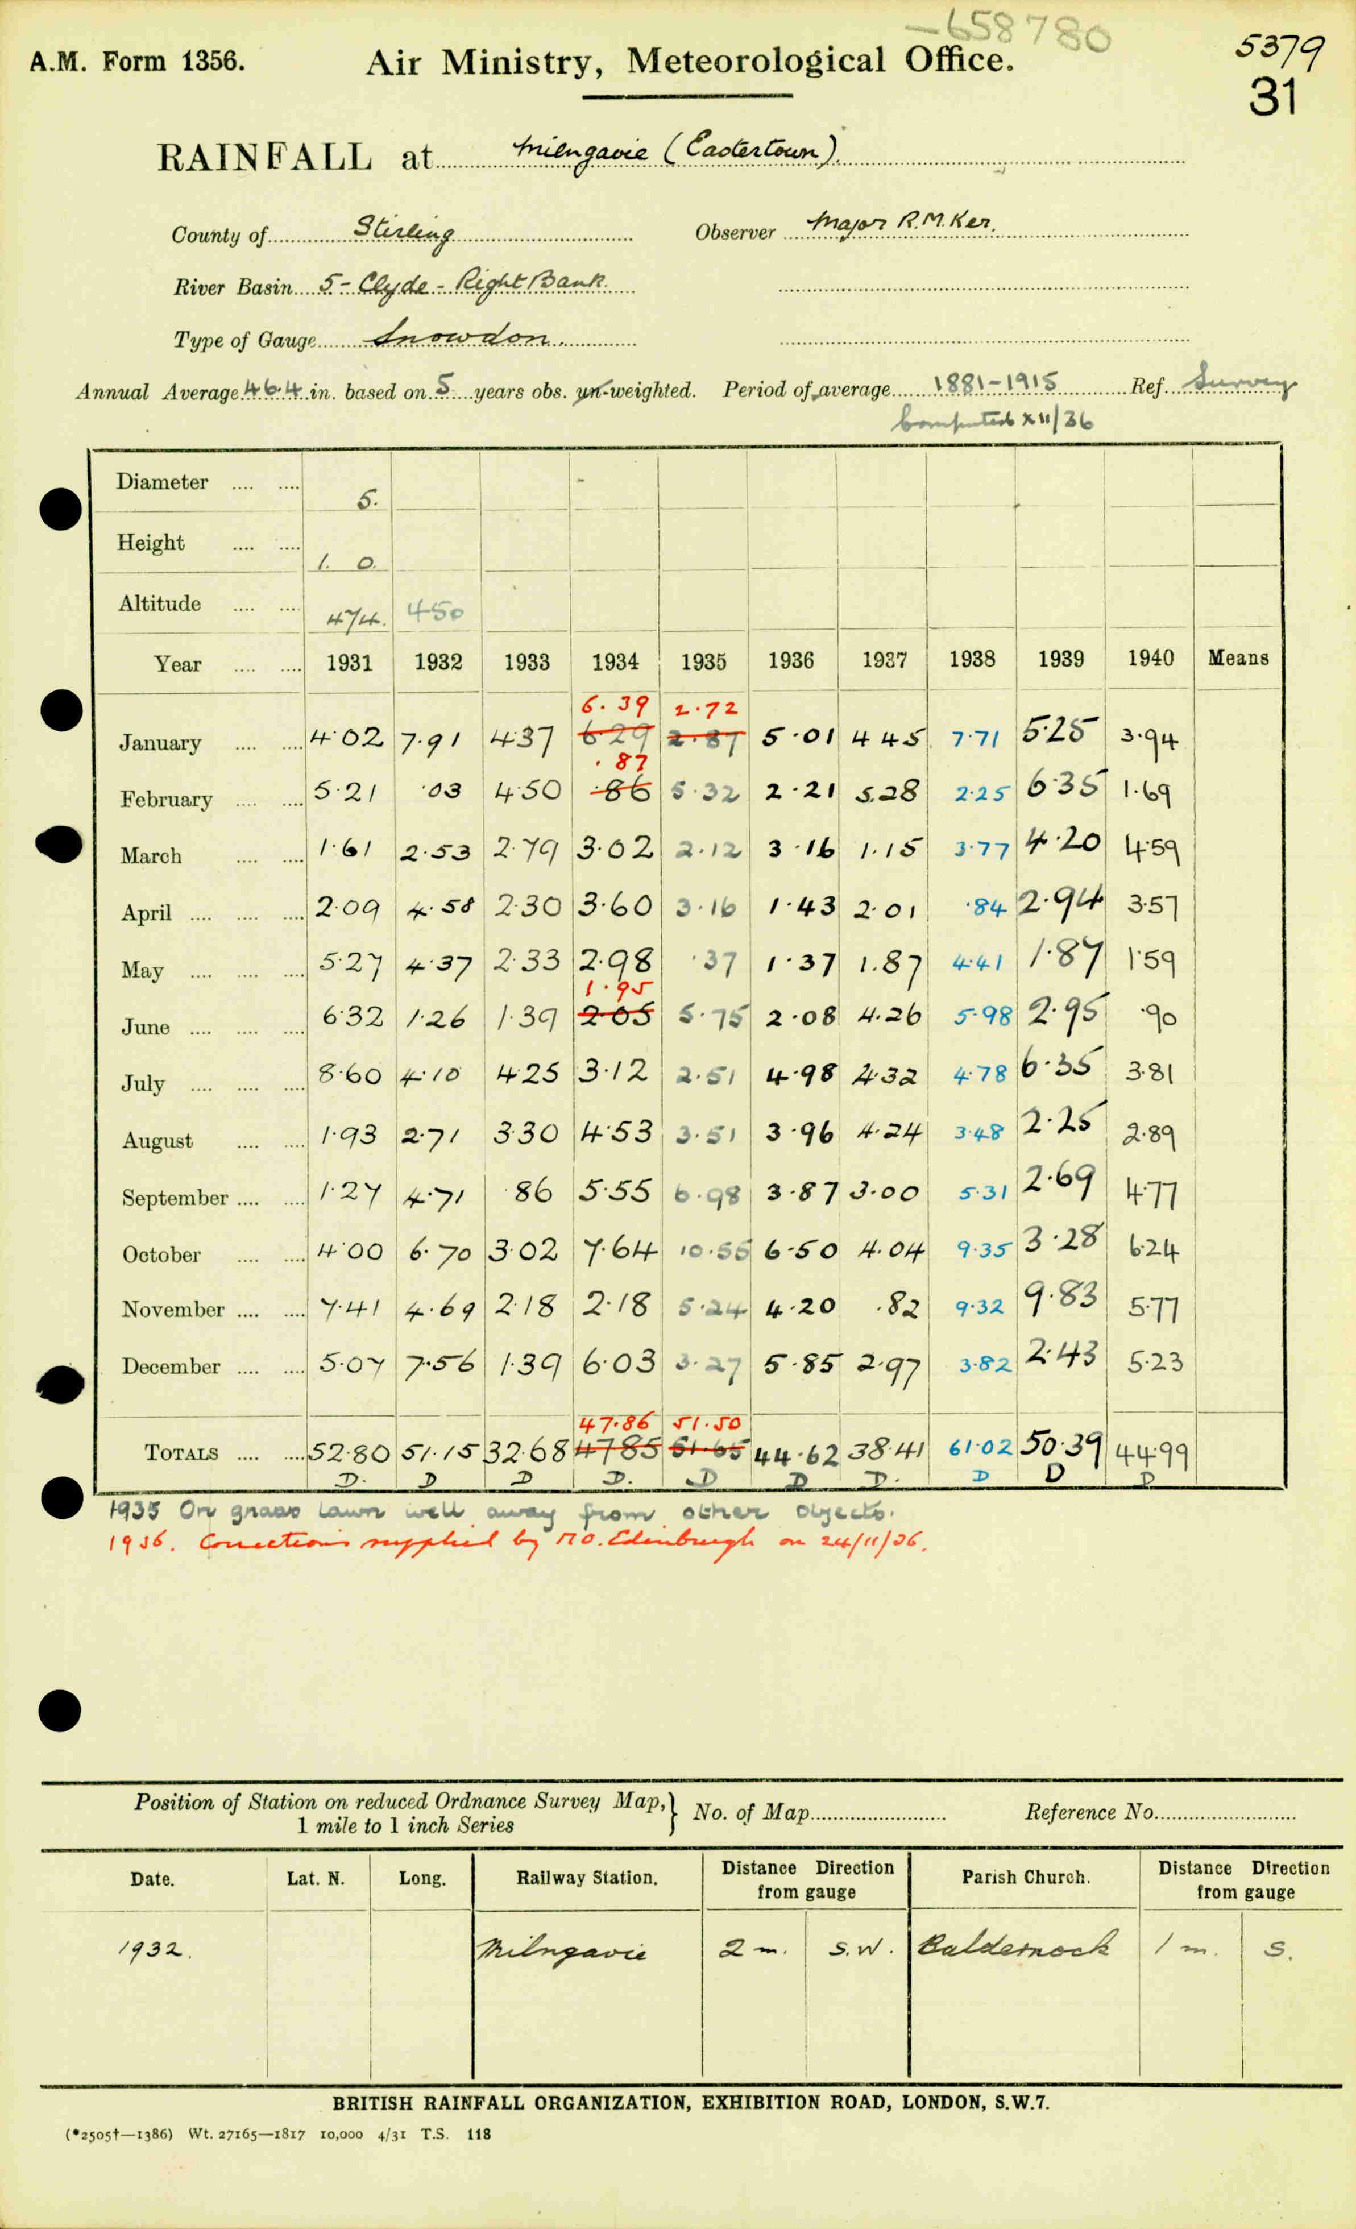 -658780
5379
A.M. Form 1356. Air Ministry, Meteorological Office.
31
RAINFALL at Milngavie (Eastertown).
County of Stirling Observer Major R.M.Ker.
River Basin 5 - Clyde - Right Bank.
Type of Gauge Snowdon.
Annual Average 46.4 in. based on 5 years obs. un-weighted. Period of average 1881-1915 Ref. Survey
Computed XII/36
Diameter .... .... 5.
Height .... .... 1. 0.
Altitude .... .... 474. 450
Year .... .... 1931 1932 1933 1934 1935 1936 1937 1938 1939 1940 Means
6.39 2.72
January .... .... 4.02 7.91 4.37 6.29 2.87 5.01 4.45 7.71 5.25 3.94
.87
February .... .... 5.21 .03 4.50 .86 5.32 2.21 5.28 2.25 6.35 1.69
March .... .... 1.61 2.53 2.79 3.02 2.12 3.16 1.15 3.77 4.20 4.59
April .... .... .... 2.09 4.58 2.30 3.60 3.16 1.43 2.01 .84 2.94 3.57
May .... .... .... 5.27 4.37 2.33 2.98 .37 1.37 1.87 4.41 1.87 1.59
1.95
June .... .... .... 6.32 1.26 1.39 2.05 5.75 2.08 4.26 5.98 2.95 .90
July .... .... .... 8.60 4.10 4.25 3.12 2.51 4.98 4.32 4.78 6.35 3.81
August .... .... 1.93 2.71 3.30 4.53 3.51 3.96 4.24 3.48 2.25 2.89
September .... .... 1.27 4.71 .86 5.55 6.98 3.87 3.00 5.31 2.69 4.77
October .... .... 4.00 6.70 3.02 7.64 10.55 6.50 4.04 9.35 3.28 6.24
November .... .... 7.41 4.69 2.18 2.18 5.24 4.20 .82 9.32 9.83 5.77
December .... .... 5.07 7.56 1.39 6.03 3.27 5.85 2.97 3.82 2.43 5.23
47.86 51.50
TOTALS .... .... 52.80 51.15 32.68 47.85 51.65 44.62 38.41 61.02 50.39 44.99
D. D D D. D D D. D D D
1935 On grass lawn well away from other objects.
1936. Corrections supplied by M.O. Edinburgh on 24/11/36.
Position of Station on reduced Ordnance Survey Map, } No. of Map Reference No.
1 mile to 1 inch Series
Date. Lat. N. Long. Railway Station. Distance Direction from gauge Parish Church. Distance Direction from gauge
1932. Milngavie 2 m. S.W. Baldernock 1 m. S.
BRITISH RAINFALL ORGANIZATION, EXHIBITION ROAD, LONDON, S.W.7.
(*2505†—1386) Wt. 27165—1817 10,000 4/31 T.S. 118